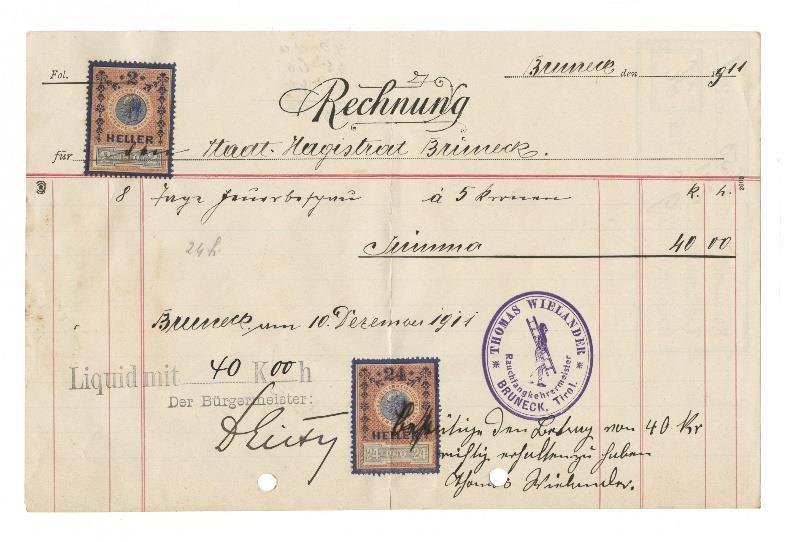 Fol.
Bruneck den 1911
Rechnung
2
HELLER
für Stadt-Magistrat Bruneck.
8 Tage Feuerbeschau à 5 Kronen K. h.
Summa 40 00
24 h.
Bruneck, am 10. Dezember 1911
Liquid mit 40 K 00 h
Der Bürgermeister:
24
HELLER
24 24
THOMAS WIELANDER
Rauchfangkehrermeister
BRUNECK, Tirol.
Bestätige den Betrag von 40 Kr
richtig erhalten zu haben
Thomas Wielander.